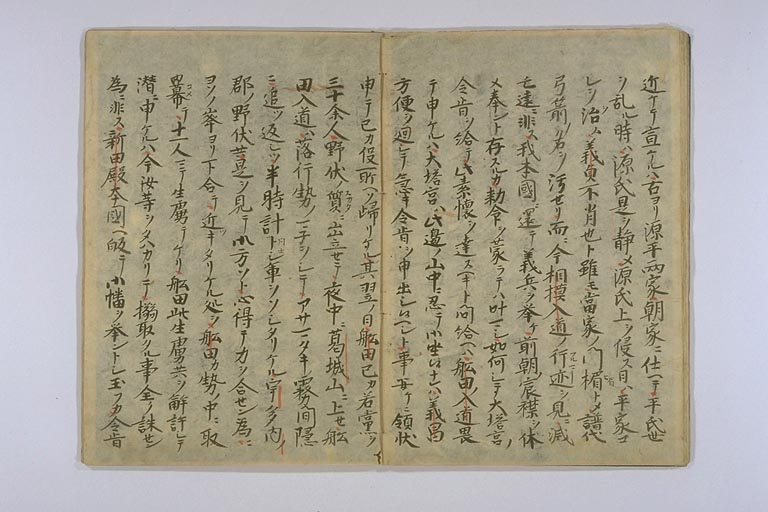 近ケテ宣ケルハ古ヨリ源平両家朝家ニ仕ヘテ平氏世
ヲ乱ル時ハ源氏是ヲ静メ源氏上ヲ侵ス日ハ平家コ
レヲ治ム義貞不肖也ト雖モ當家ノ門楣トメ譜代
弓箭ノ名ヲ汚セリ而ニ今相摸入道ノ行迹ヲ見ニ滅
亡遠ニ非ス我本國ニ還テ義兵ヲ挙ケ前朝宸襟ヲ休
メ奉ント存スルカ勅命ヲ蒙ラテハ叶マシ如何シテ大塔宮ノ
令旨ヲ給テ此素懐ヲ達スヘキト問給ヘハ舩田入道畏
テ申ケルハ大塔宮ハ此邊ノ山中ニ忍テ義昌
方便ヲ廻シテ急キ令旨ヲ申出シ事安ケニ領状
申テ己カ役所ヘソ歸リケル其翌ノ日舩田己カ若黨ヲ
三十余人野伏ノ質ニ出立セテ夜中ニ葛城山ニ上セ舩
田入道ハ落行勢ノマ子ヲシテアサマタキノ霧間隠
ニ追ツ返シツ半時計トモ軍ヲソシタリケル宇多ノ内ノ
郡ノ野伏共是ヲ見テ御方ソト心得テ力ヲ合セン為ニ
ヨソノ峯ヨリ下合テ近キタリケル処ヲ舩田カ勢ノ中ニ取
篭テ十一人マテ生虜テケリ舩田此生虜共ヲ解許シテ
潜ニ申ケルハ今汝等ヲタハカリテ搦取タル事全ク誅セン
為ニ非ス新田殿本國ヘ皈テ御幡ヲ挙ントシ玉フカ令旨